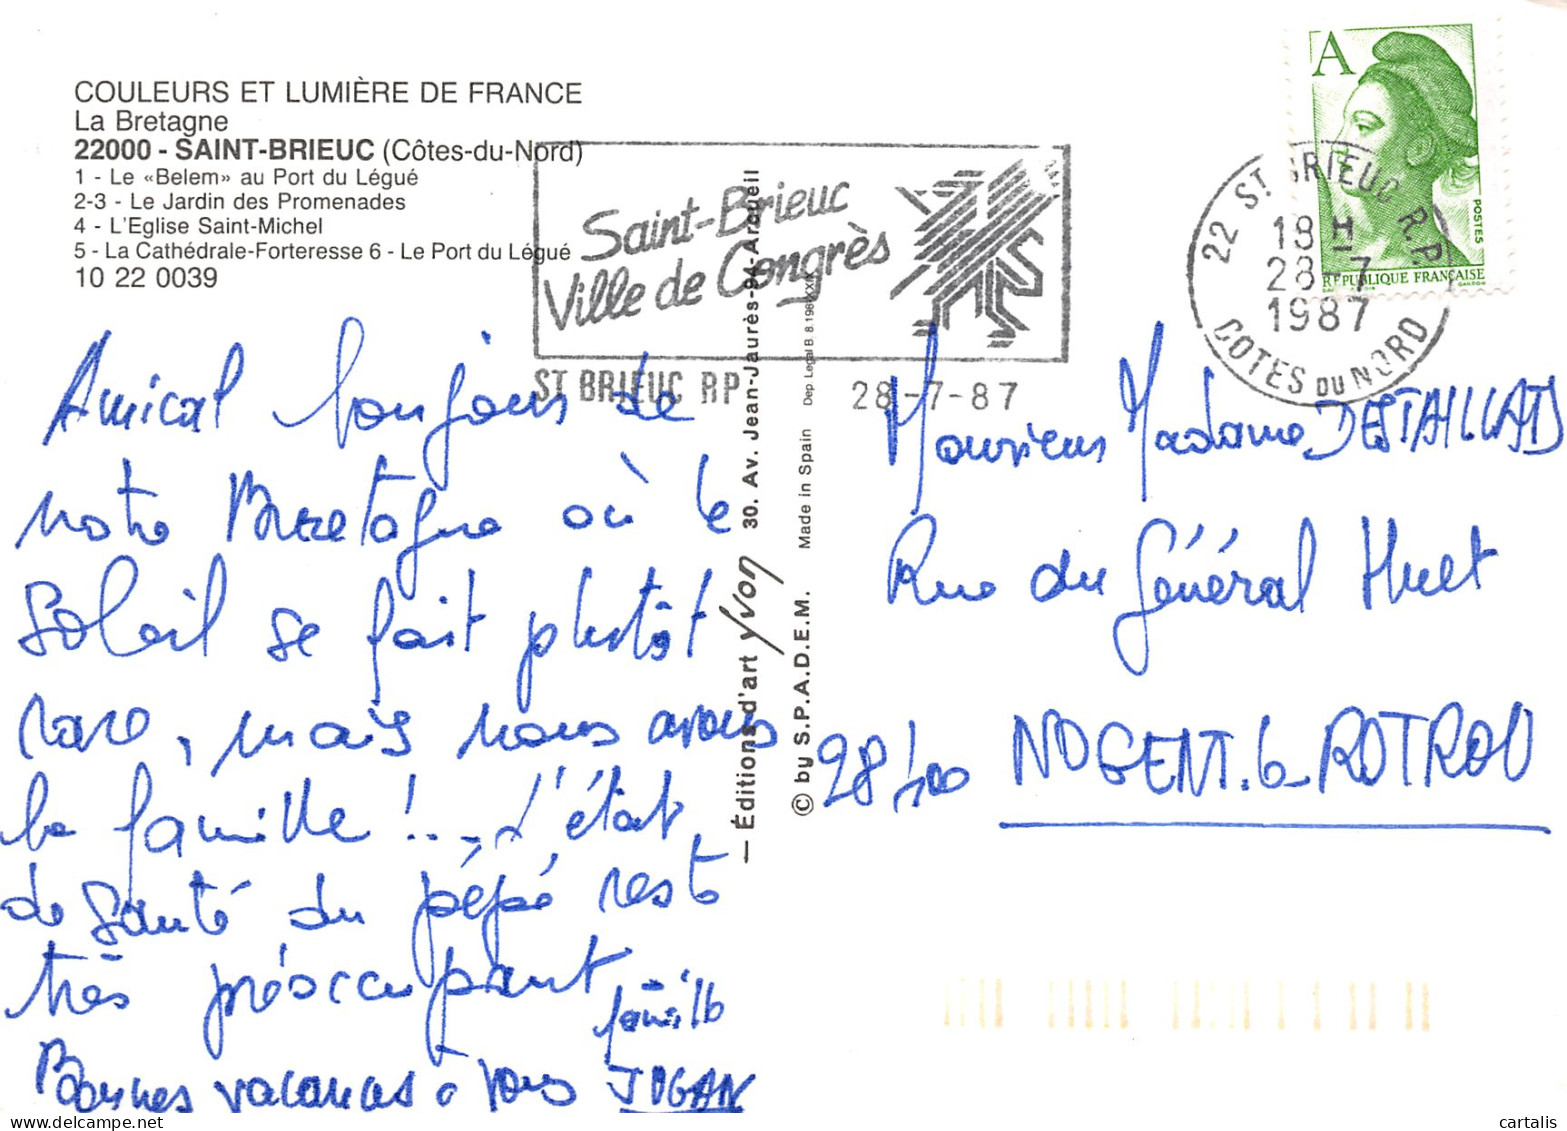 COULEURS ET LUMIÈRE DE FRANCE
La Bretagne
22000 - SAINT-BRIEUC (Côtes-du-Nord)
1 - Le «Belem» au Port du Légué
2-3 - Le Jardin des Promenades
4 - L'Eglise Saint-Michel
5 - La Cathédrale-Forteresse 6 - Le Port du Légué
10 22 0039
Saint-Brieuc
Ville de Congrès
ST BRIEUC RP 28-7-87
A
POSTES
RÉPUBLIQUE FRANÇAISE
GANDON
22 ST BRIEUC R.P.
18 H
28-7
1987
COTES DU NORD
Amical bonjour de
notre Bretagne où le
Soleil se fait plutôt
rare, mais nous avons
la famille !... L'état
de santé du pépé reste
très préoccupant
Bonnes vacances à vous
famille
JUGAN
— Éditions d'art yvon 30. Av. Jean-Jaurès-94-Arcueil
© by S.P.A.D.E.M. Made in Spain Dep Legal B 8.198-XXX
Monsieur Madame DESTAILLATS
Rue du Général Huet
28400 NOGENT-le-ROTROU
cartalis